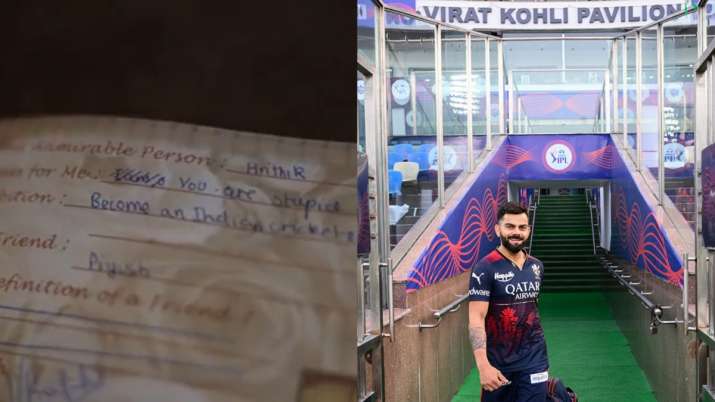 Admirable Person : Hrithik
for Me : You are stupid
Become an Indian cricketer
Friend :
Piyush
Definition of a Friend
VIRAT KOHLI PAVILION
IPL
PUMA
Happilo
QATAR
AIRWAYS